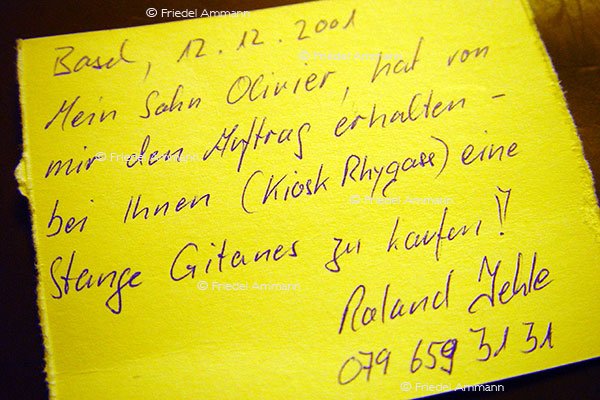 © Friedel Ammann
Basel, 12.12.2001
© Friedel Ammann
Mein Sohn Olivier, hat von
mir den Auftrag erhalten –
© Friedel Ammann
bei Ihnen (Kiosk Rhygass) eine
© Friedel Ammann
Stange Gitanes zu kaufen!!
© Friedel Ammann
Roland Jehle
079 659 31 31
© Friedel Ammann